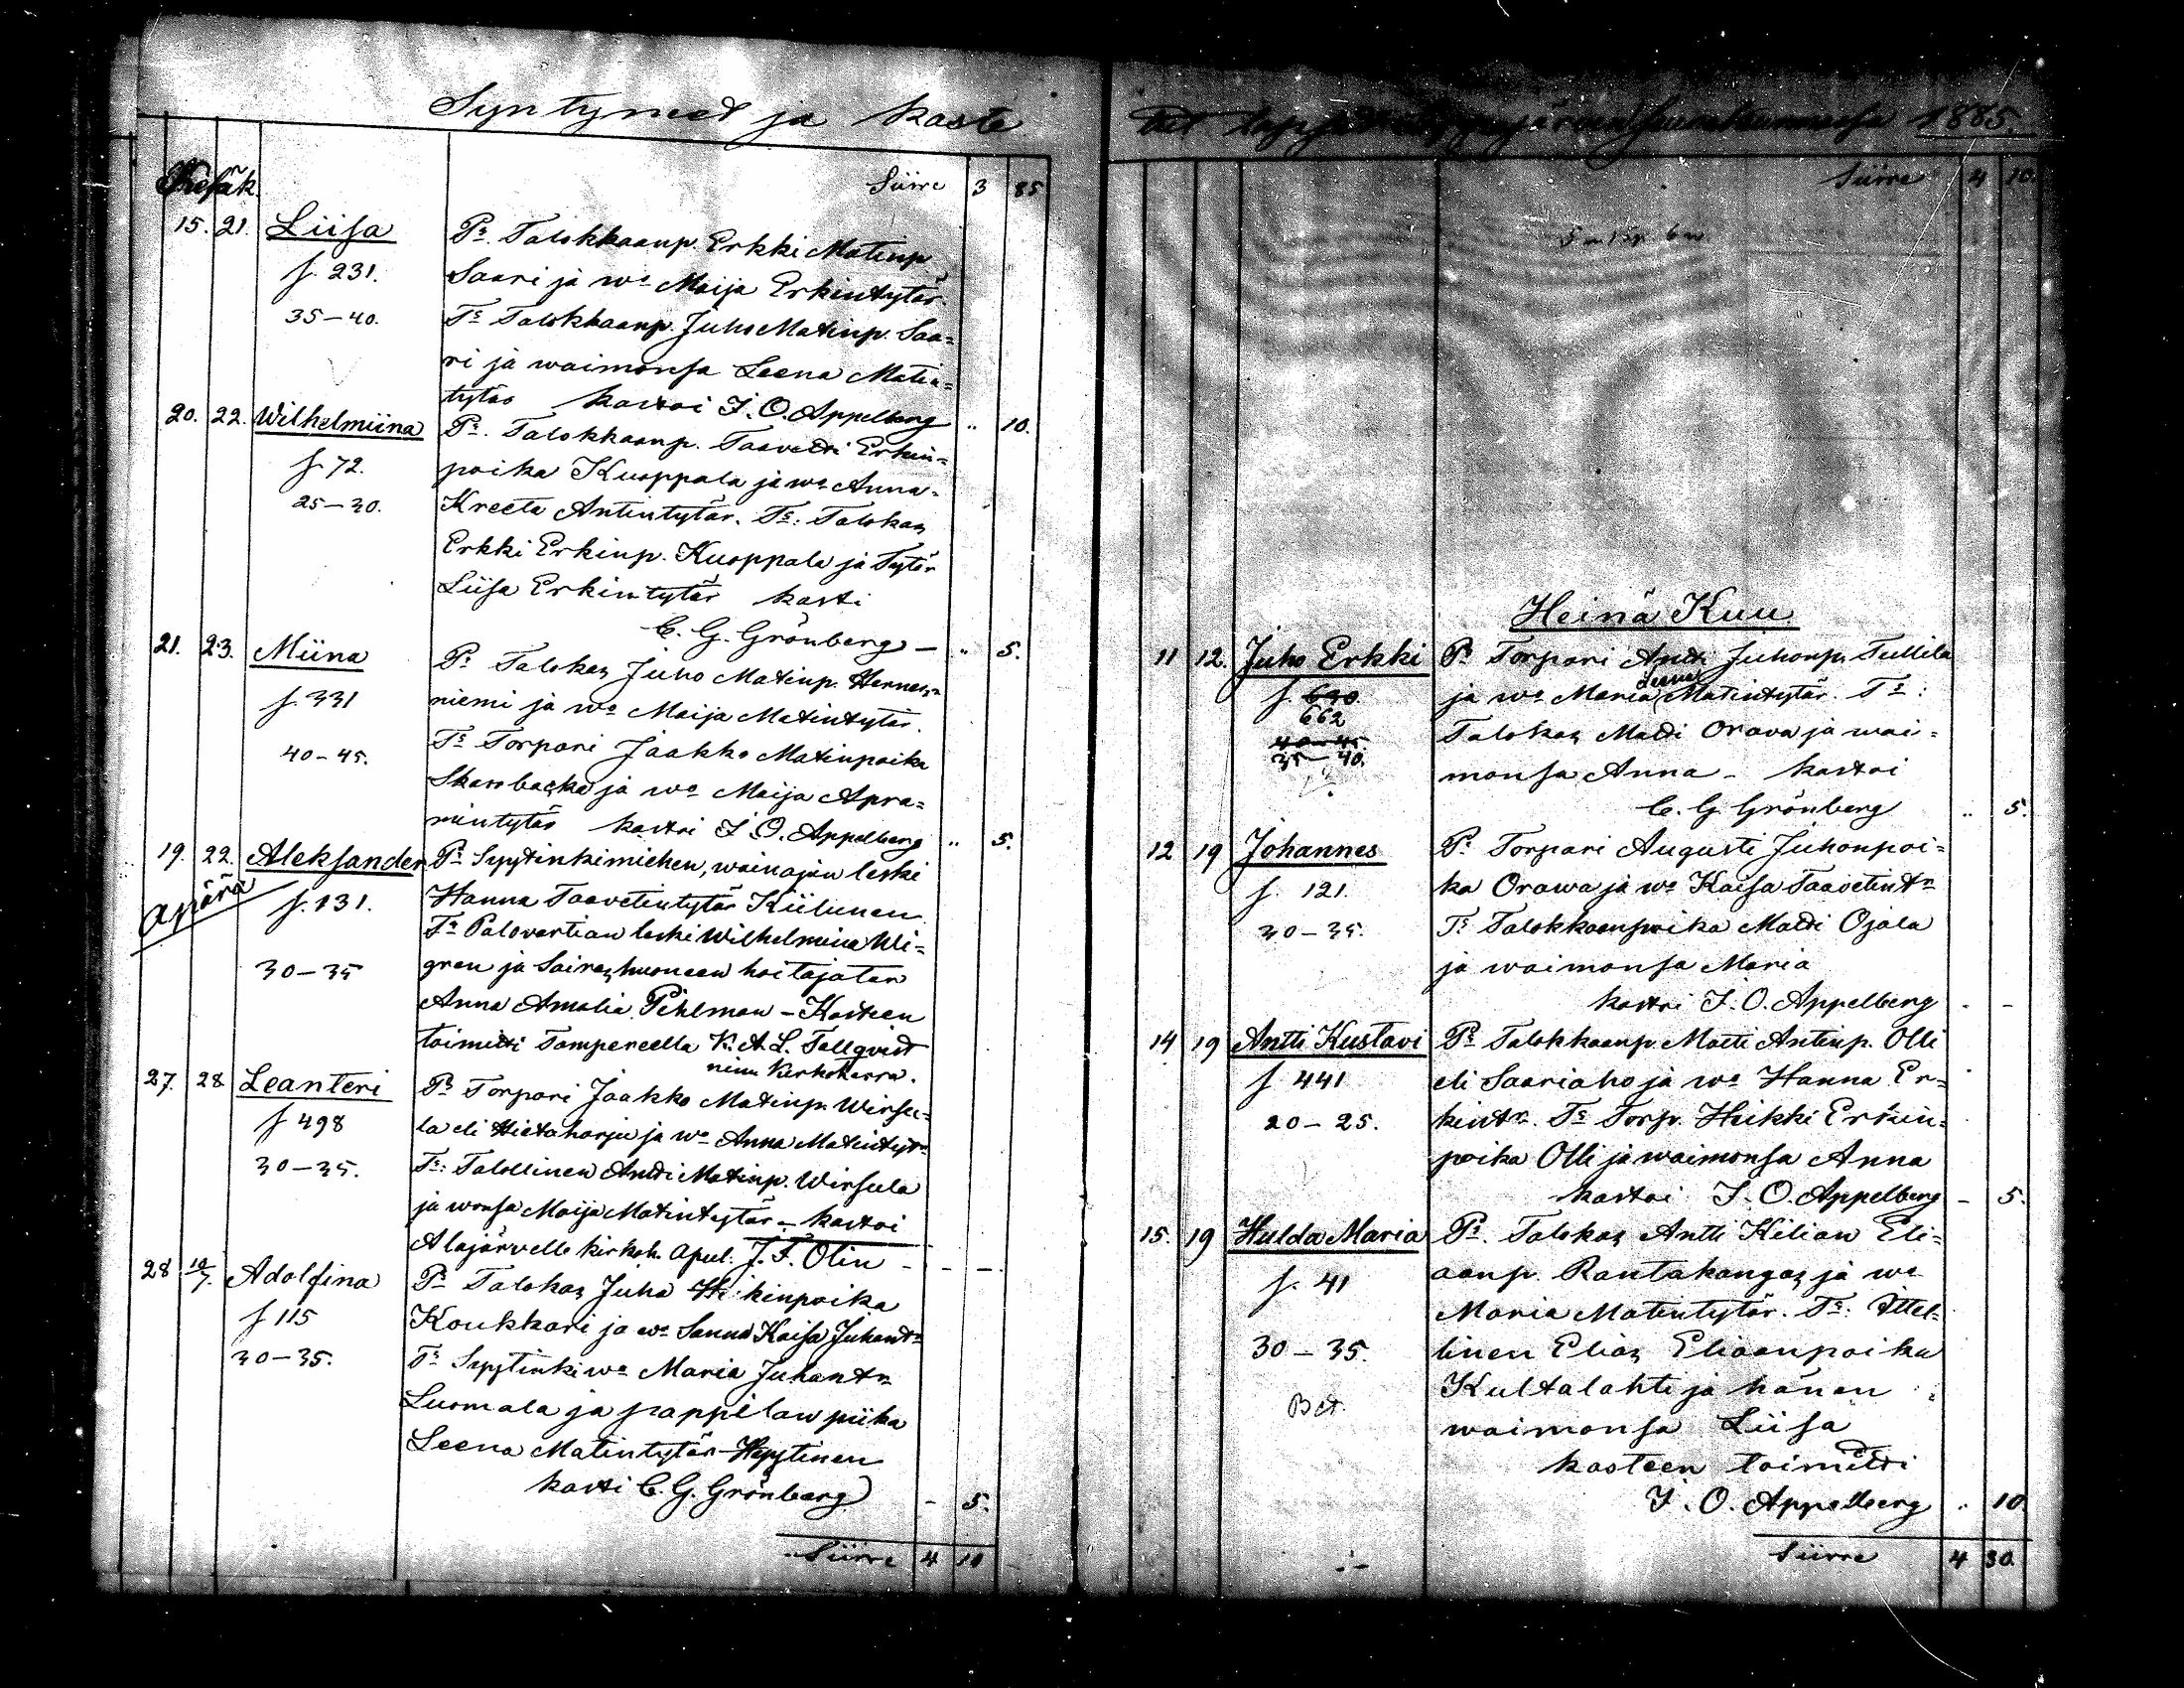 Syntyneet ja kaste
Kesäk.
Siirre 3 85
15. 21. Liisa Ps. Talokkaanp. Erkki Matinp.
f. 231. Saari ja wo Maija Erkintytär.
35-40. Ts Talokkaanp. Juho Matinp. Saa=
ri ja waimonsa Leena Matin=
tytär kastoi J. O. Appelberg " 10.
20. 22. Wilhelmiina Ps. Talokkaanp. Taavetti Erkin=
f. 72. poika Kuoppala ja wo Anna-
25-30. Kreeta Antintytär. Ts: Talokas
Erkki Erkinp. Kuoppala ja Tytär
Liisa Erkintytär kasti
C. G. Grönberg - " 5.
21. 23. Miina Ps Talokas Juho Matinp. Hernes=
f. 331 niemi ja wo Maija Matintytär.
40-45. Ts Torpari Jaakko Matinpoika
Skarsbacka ja wo Maija Apra=
mintytär kastoi J. O. Appelberg " 5.
19. 22. Aleksander Ps Syytinkimiehen, wainajan leski
Apärä f. 131. Hanna Taavetintytär Kiilunen
Ts Palovartian leski Wilhelmiina Wi=
30-35 gren ja Sairashuoneen hoitajatar
Anna Amalia Pihlman - Kasteen
toimitti Tampereella K. A. L. Tallqvist
nim. Kirkoherra.
27. 28 Leanteri Ps Torpari Jaakko Matinp. Wirsu=
f 498 la eli Hietaharju ja wo Anna Matintytr
30-35. Ts: Talollinen Antti Matinp. Wirsula
ja wonsa Maija Matintytär - kastoi
Alajärvelle kirkoh. apul. J. F. Olin - - -
28 10/7. Adolfina Ps Talokas Juha Heikinpoika
f 115 Koukkari ja wo Sanna Kaisa Juhantr
30-35. Ts Syytinki wo Maria Juhantr
Luomala ja pappilan piika
Leena Matintytär Hyytinen
kasti C. G. Grönberg - 5.
Siirre 4 10
1885.
Siirre 4 10.
Heinä Kuu
11 12. Juho Erkki Ps Torpari Antti Juhonp. Tullila
f. 690. ja wo Maria Leena Matintytär. Ts:
662
40-45. Talokas Matti Orava ja wai=
35-40. monsa Anna - kastoi
C. G. Grönberg " 5.
12 19 Johannes Ps Torpari Augusti Juhonpoi=
f. 121. ka Orawa ja wo Kaisa Taavetintr
30-35. Ts Talokkaanpoika Matti Ojala
ja waimonsa Maria
kastoi J. O. Appelberg - -
14 19 Antti Kustavi Ps Talokkaanp. Matti Antinp. Olli
f 441 eli Saariaho ja wo Hanna Er=
20-25. kintr. Ts Torp. Heikki Erkin=
poika Olli ja waimonsa Anna
kastoi J. O. Appelberg - 5.
15. 19 Hulda Maria Ps. Talokas Antti Kilian Eli=
f. 41 aanp. Rantakangas ja wo
Maria Matintytär. Ts: Itsel=
30-35. linen Elias Eliaanpoika
Kultalahti ja hänen
Bet. waimonsa Liisa
kasteen toimitti
J. O. Appelberg " 10.
Siirre 4 30.